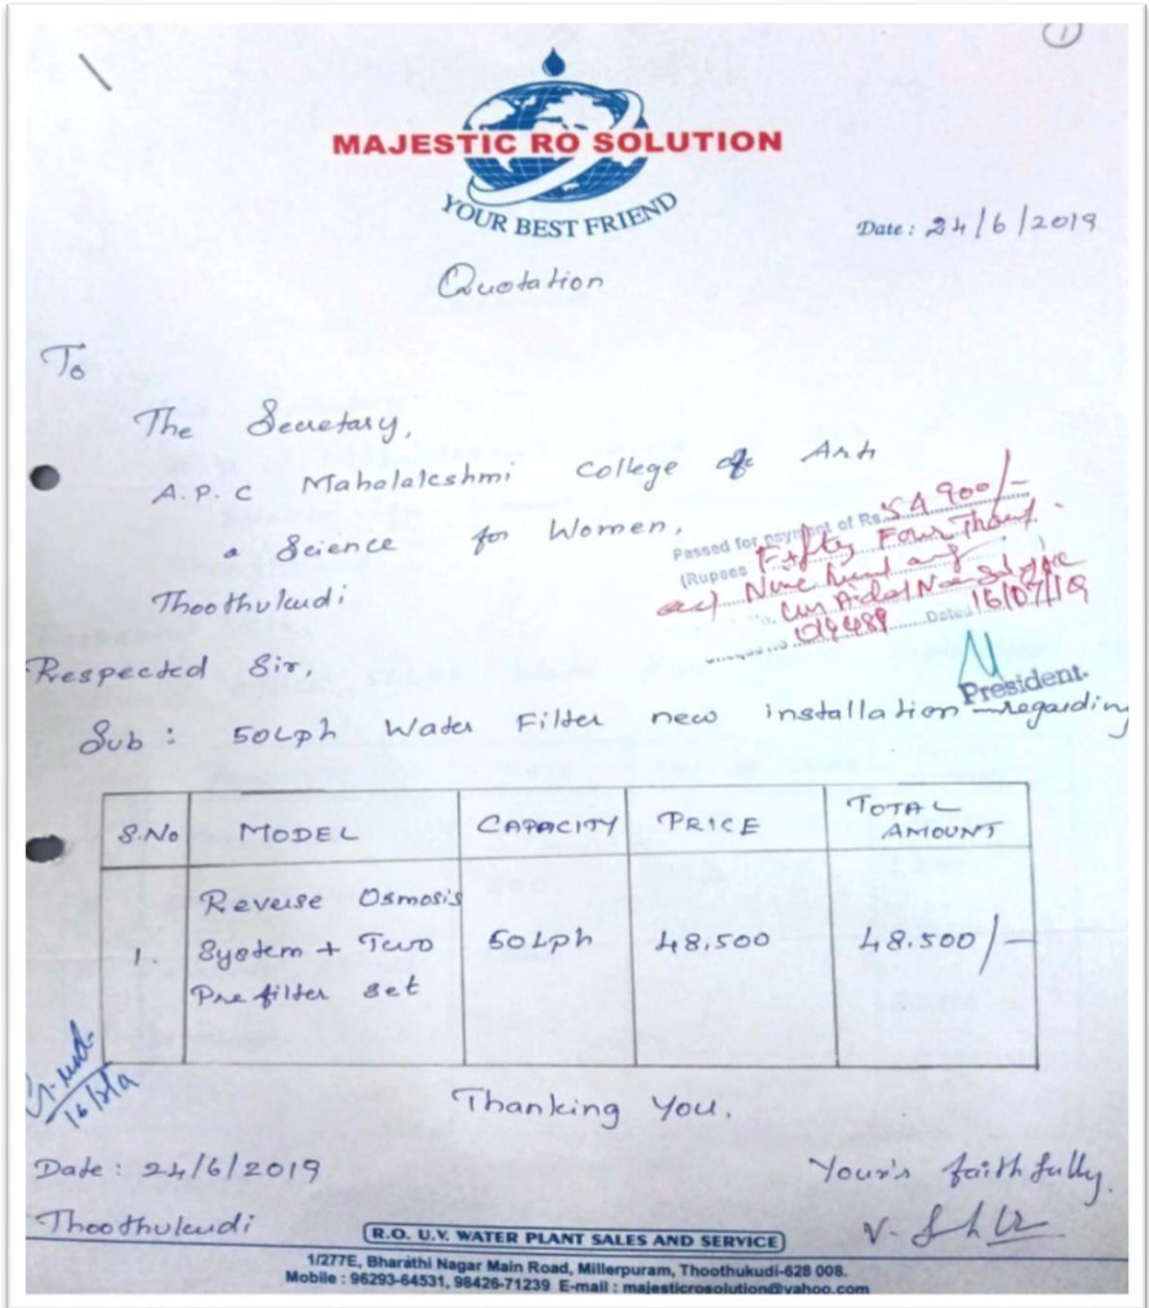 1
MAJESTIC RO SOLUTION
YOUR BEST FRIEND
Date : 24/6/2019
Quotation
To
The Secretary,
A.P.C Mahalakshmi College of Arts
& Science for Women,
Thoothukudi
Passed for payment of Rs. 54 900/-
(Rupees Fifty Four Thous
Nine hund
Dated 16/07/19
President.
Respected Sir,
Sub : 50Lph Water Filter new installation - regarding
S.No MODEL CAPACITY PRICE TOTAL AMOUNT
1. Reverse Osmosis System + Two Prefilter set 50Lph 48,500 48.500/-
Thanking You.
Date : 24/6/2019
Your's faithfully.
Thoothukudi
R.O. U.V. WATER PLANT SALES AND SERVICE
1/277E, Bharathi Nagar Main Road, Millerpuram, Thoothukudi-628 008.
Mobile : 96293-64531, 98426-71239 E-mail : majesticrosolution@yahoo.com